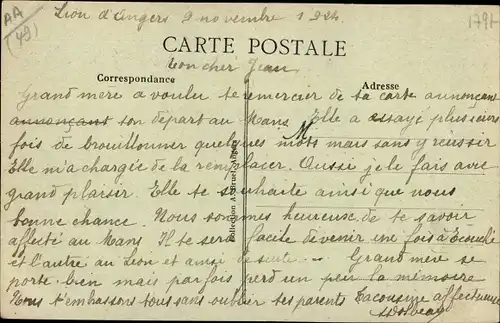 AA
(49)
Lion d'Angers 2 novembre 1924
1791
CARTE POSTALE
Mon cher Jean
Correspondance
Adresse
Grand mère a voulu te remercier de ta carte annonçant
annonçant son départ au Mans. Elle a essayé plusieurs
fois de brouillonner quelques mots mais sans y réussir
Elle m'a chargée de la remplacer. Aussi je le fais avec
grand plaisir. Elle te souhaite ainsi que nous
bonne chance. Nous sommes heureuse de te savoir
affecté au Mans. Il te sera facile de venir une fois à Ecouflé
et l'autre au Lion et ainsi de suite. — Grand mère se
porte bien mais parfois perd un peu la mémoire
Nous t'embrassons tous sans oublier tes parents Ta cousine affectueuse
Collection A. Bruel, Angers